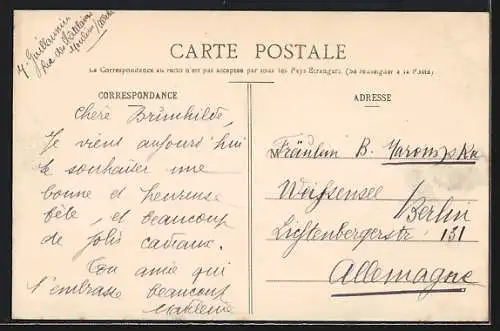 CARTE POSTALE
La Correspondance au recto n'est pas acceptée par tous les Pays Étrangers. (Se renseigner à la Poste)
CORRESPONDANCE
ADRESSE
Chère Brunhilde,
Je viens aujourd'hui
te souhaiter une
bonne et heureuse
fête, et beaucoup
de jolis cadeaux.
Ton amie qui
t'embrasse beaucoup
Fräulein B.
Weißensee
Berlin
Lichtenbergerstr. 131
Allemagne